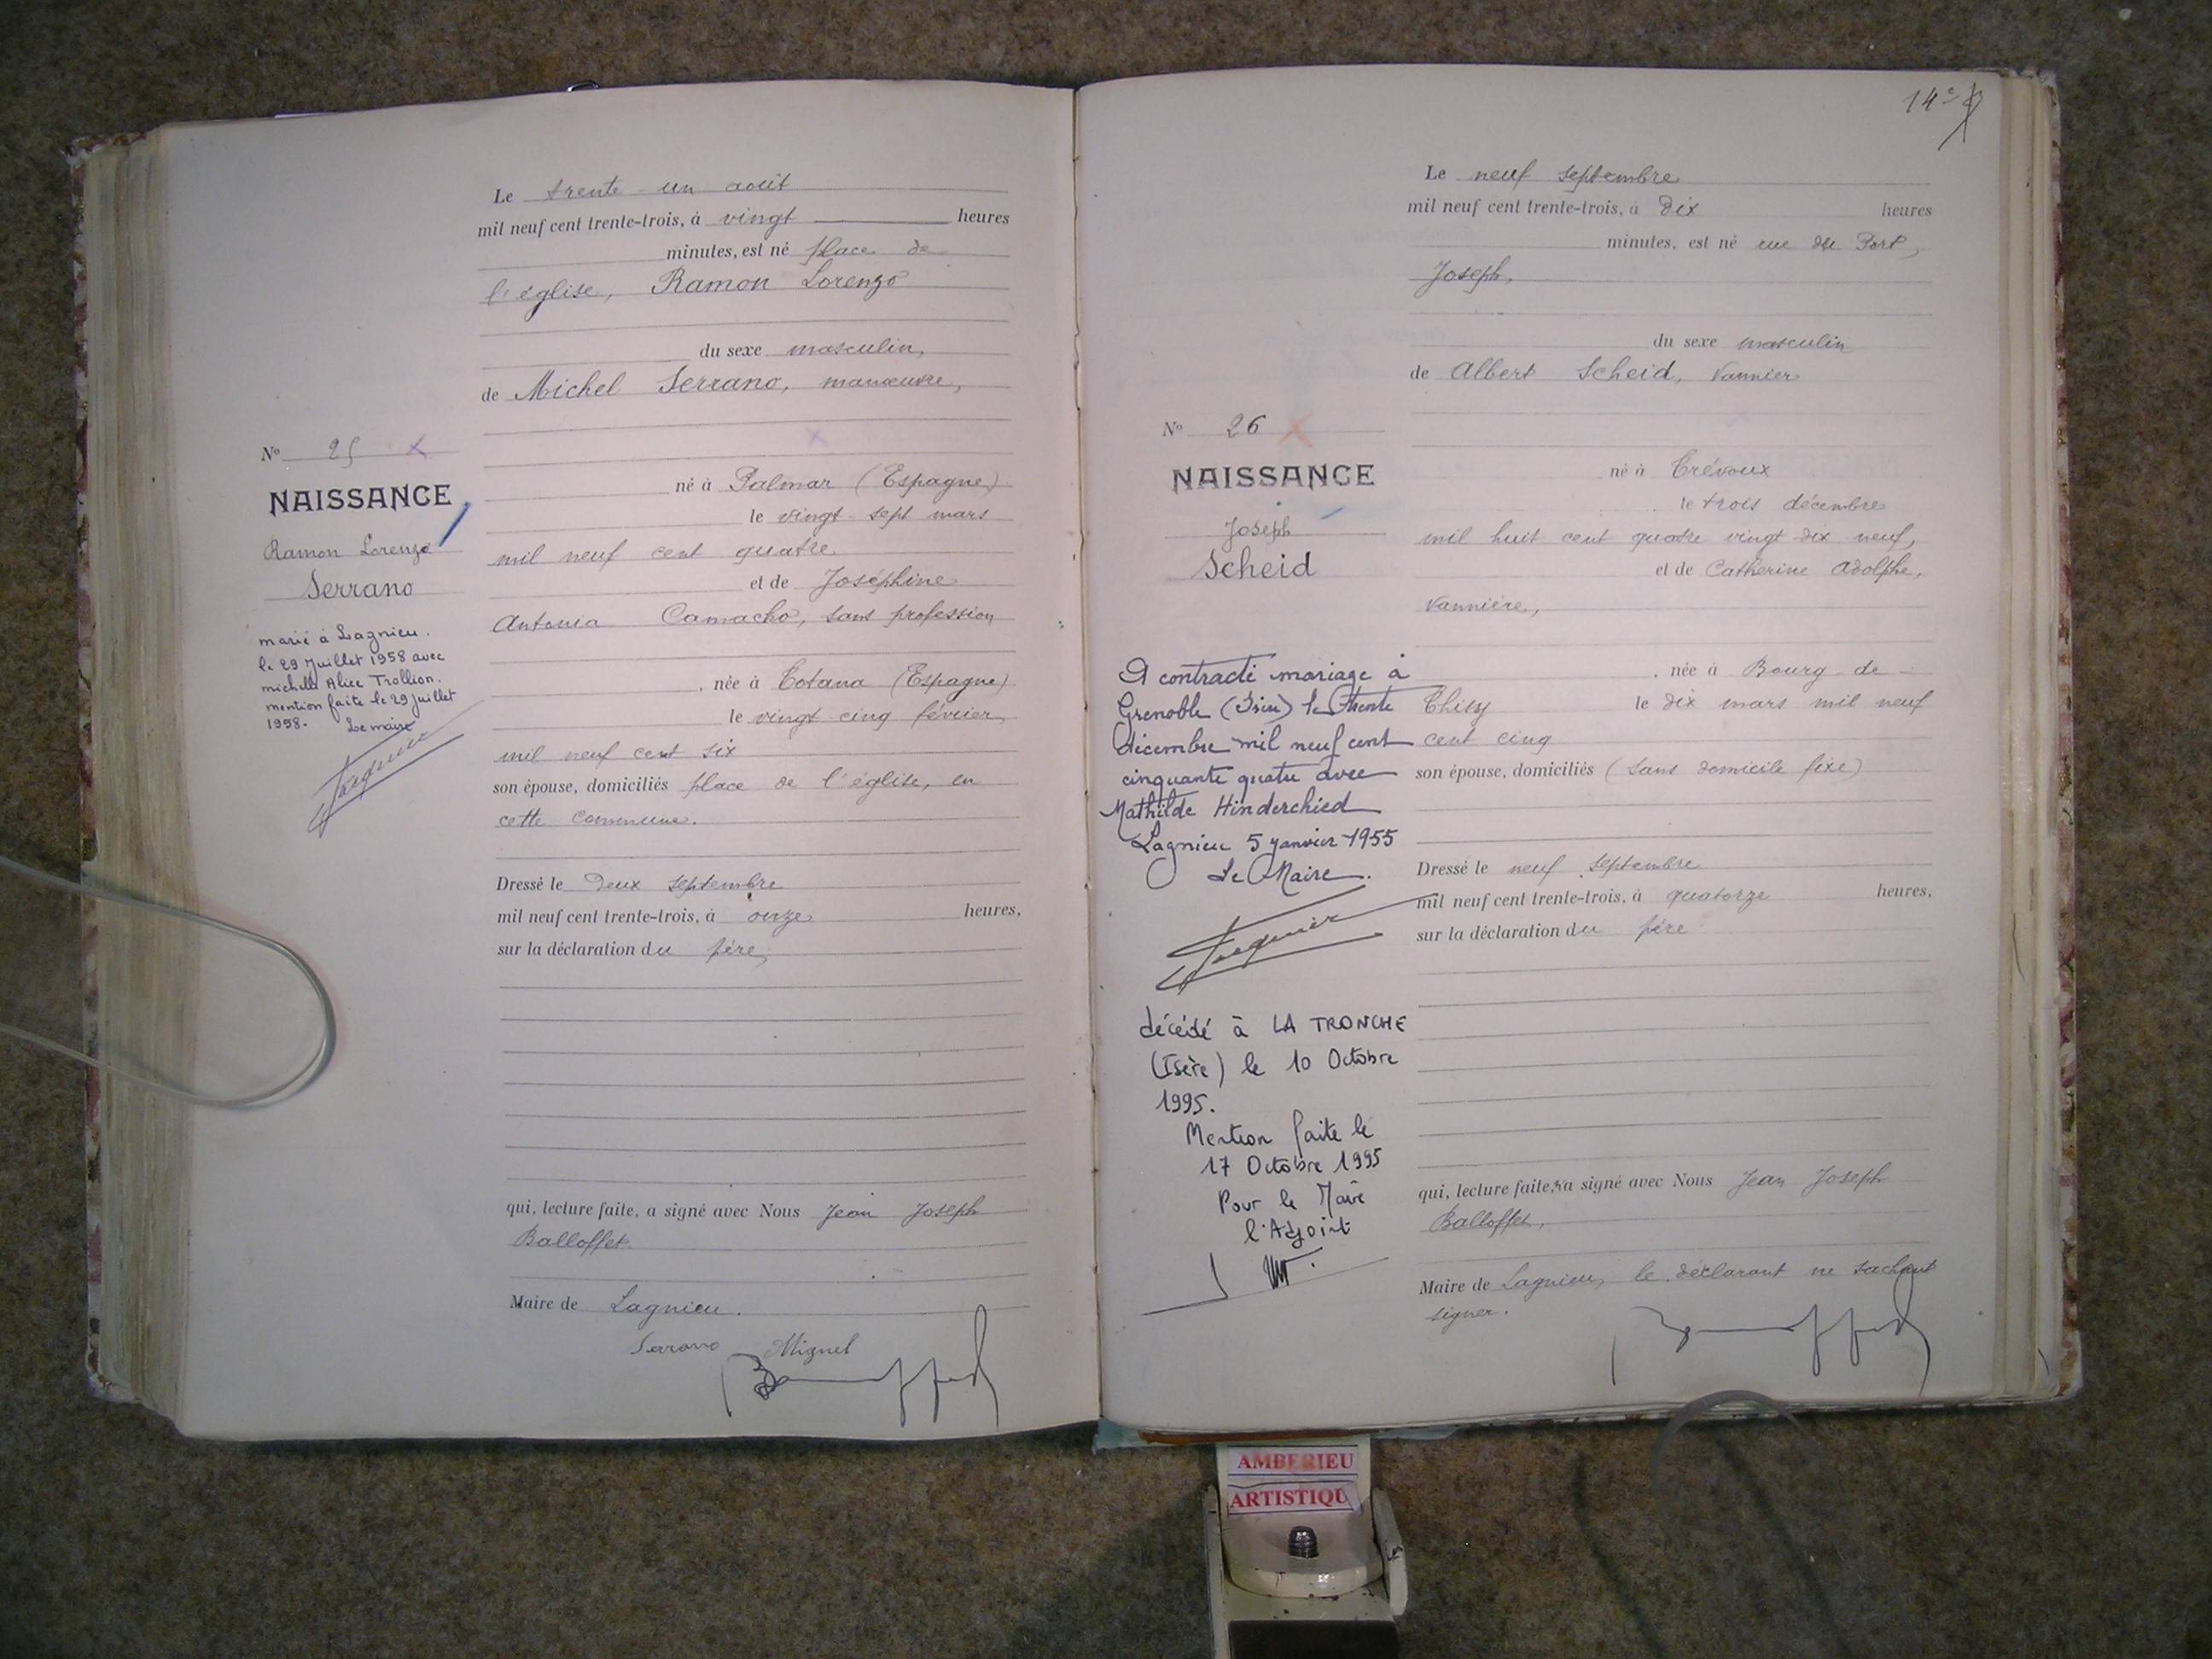 Le trente-un août
mil neuf cent trente-trois, à vingt heures
minutes, est né place de
l'église, Ramon Lorenzo
du sexe masculin,
de Michel Serrano, manœuvre,
né à Palmar (Espagne)
le vingt-sept mars
mil neuf cent quatre
et de Joséphine
Antonia Camacho, sans profession
, née à Totana (Espagne)
le vingt-cinq février,
mil neuf cent six
son épouse, domiciliés place de l'église, en
cette commune.
Dressé le deux septembre
mil neuf cent trente-trois, à onze heures,
sur la déclaration du père,
qui, lecture faite, a signé avec Nous Jean Joseph
Balloffet.
Maire de Lagnieu.
Serrano Miguel
No 25
NAISSANCE
Ramon Lorenzo
Serrano
marié à Lagnieu.
le 29 Juillet 1958 avec
michelle Alice Trollion.
mention faite le 29 juillet
1958. Le maire
14
Le neuf septembre
mil neuf cent trente-trois, à dix heures
minutes, est né rue du Port,
Joseph,
du sexe masculin
de Albert Scheid, Vannier
né à Trévoux
le trois décembre
mil huit cent quatre vingt dix neuf,
et de Catherine Adolphe,
Vannière,
, née à Bourg de -
Thisy le dix mars mil neuf
cent cinq
son épouse, domiciliés (sans domicile fixe)
Dressé le neuf septembre
mil neuf cent trente-trois, à quatorze heures,
sur la déclaration du père
qui, lecture faite, n'a signé avec Nous Jean Joseph
Balloffet,
Maire de Lagnieu, le déclarant ne sachant
signer.
No 26
NAISSANCE
Joseph
Scheid
A contracté mariage à
Grenoble (Isère) le trente
décembre mil neuf cent
cinquante quatre avec
Mathilde Hinderchied
Lagnieu 5 janvier 1955
Le Maire.
décédé à LA TRONCHE
(Isère) le 10 Octobre
1995.
Mention faite le
17 Octobre 1995
Pour le Maire
l'Adjoint
AMBERIEU
ARTISTIQU